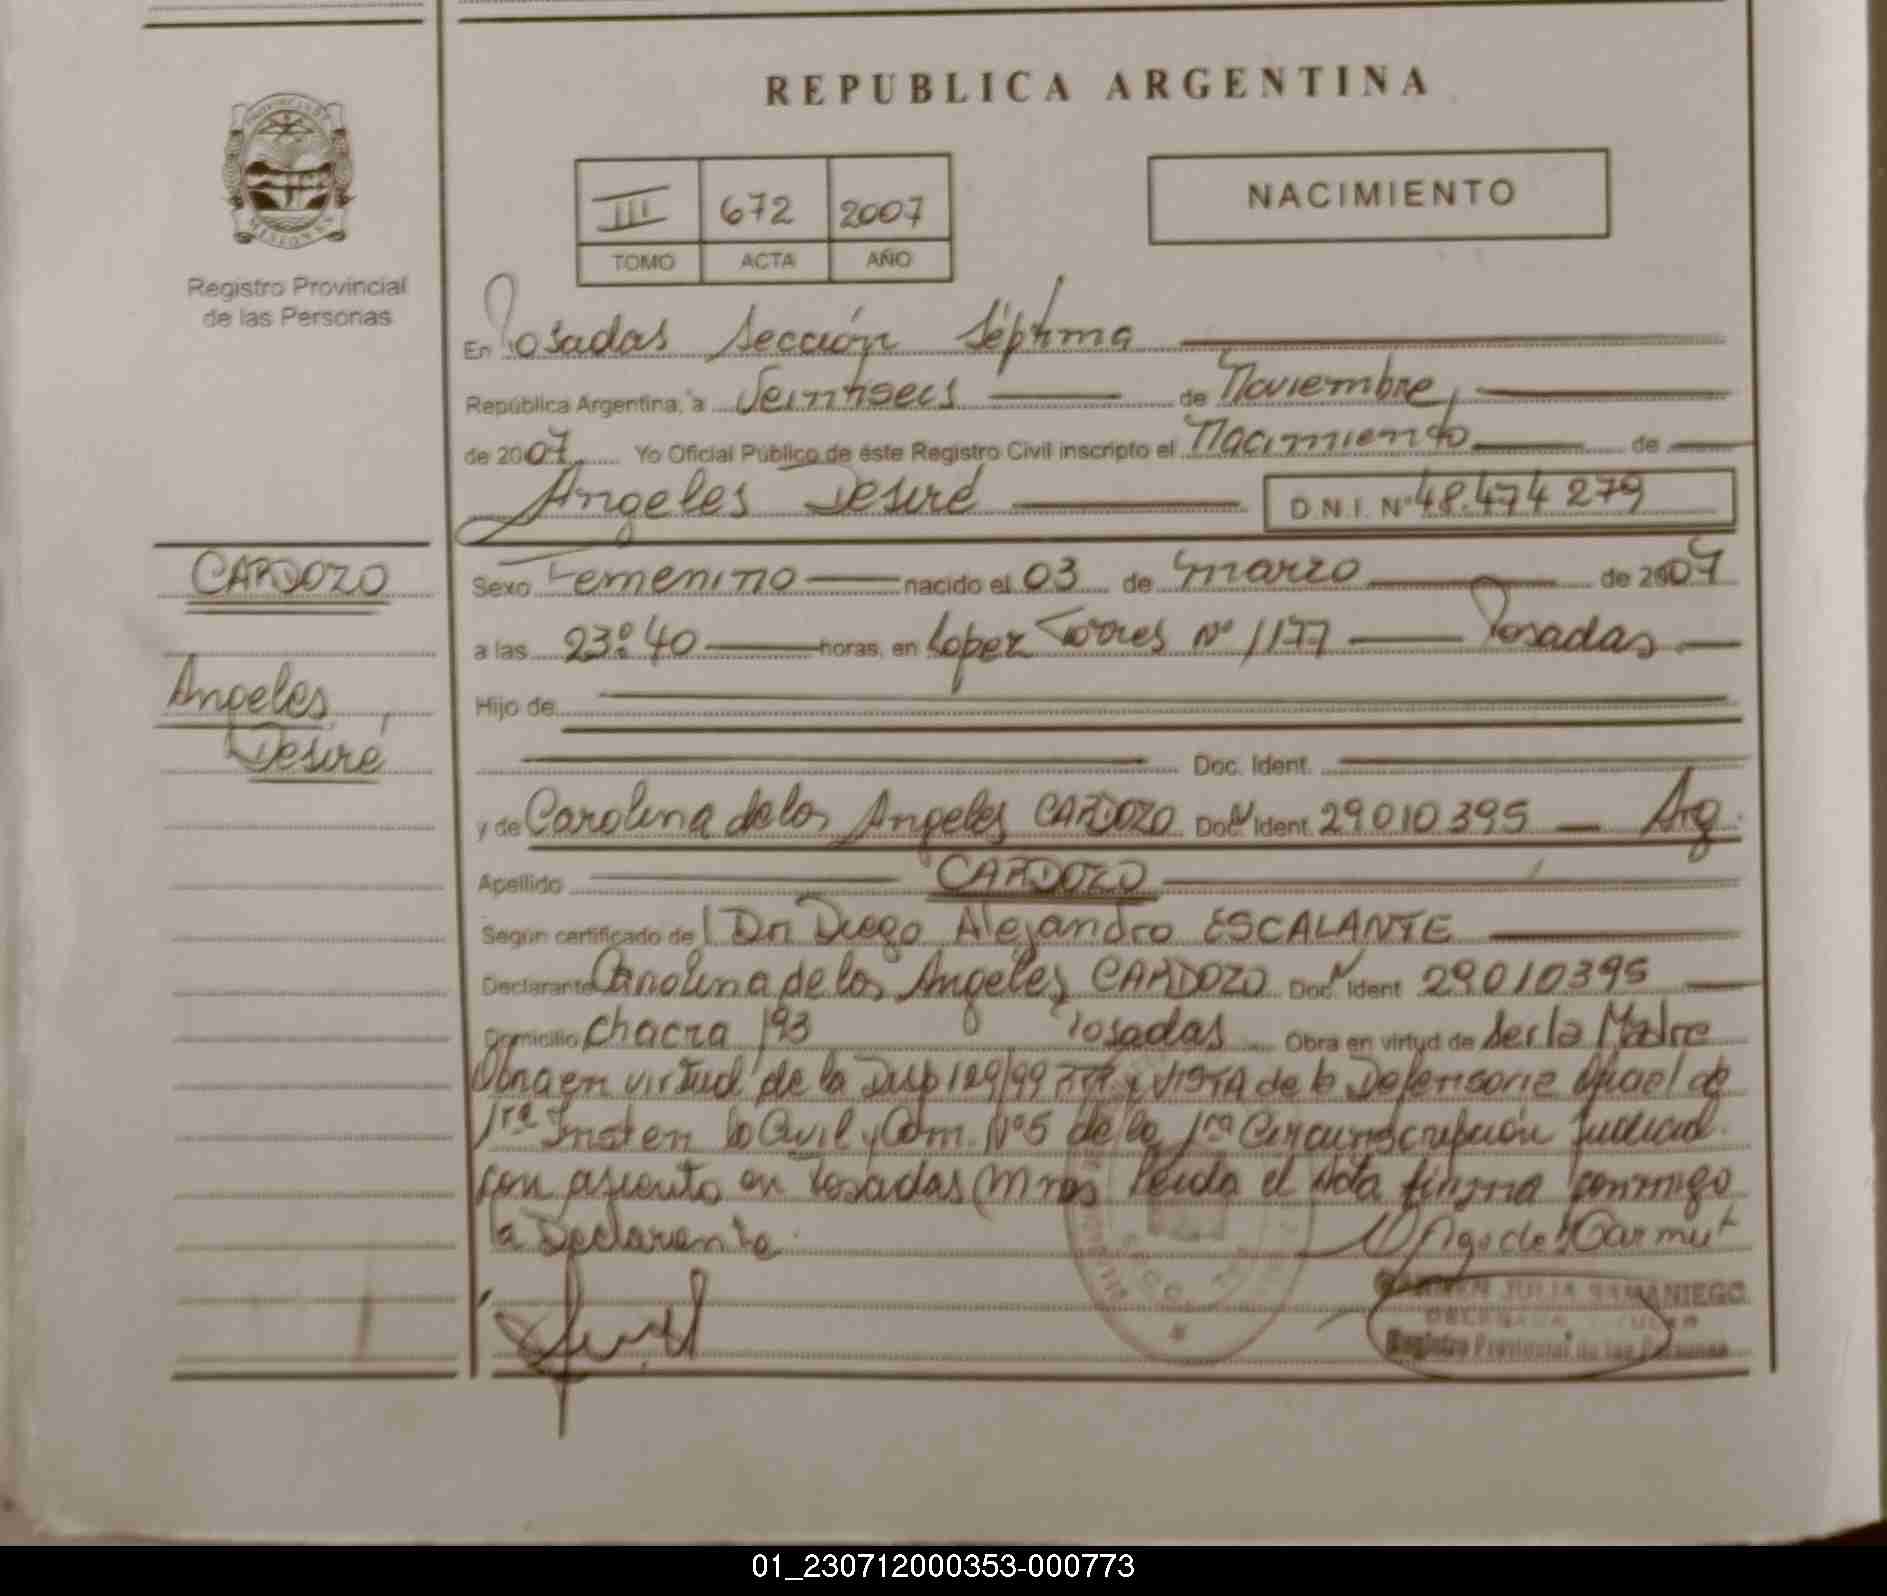 REPUBLICA ARGENTINA
PROVINCIA DE
MISIONES
Registro Provincial
de las Personas
III 672 2007
TOMO ACTA AÑO
NACIMIENTO
En Posadas Sección Séptima
República Argentina, a Veintiseis de Noviembre,
de 2007 Yo Oficial Público de éste Registro Civil inscripto el Nacimiento de
Angeles Desiré D.N.I. Nº 48.474 279
CARDOZO
Angeles,
Desiré
Sexo Femenino nacido el 03 de marzo de 2007
a las 23:40 horas, en Lopez Torres Nº 1177 Posadas
Hijo de
Doc. Ident.
y de Carolina de los Angeles CARDOZO Doc. Ident. 29010395 Arg.
Apellido CARDOZO
Según certificado de Dr Diego Alejandro ESCALANTE
Declarante Carolina de los Angeles CARDOZO Doc. Ident 29010395
Domicilio Chacra 193 Posadas Obra en virtud de ser la Madre
Obra en virtud de la Disp 129/99 y VISTA de la Defensoria Oficial de
1ra Inst en lo Civil y Com. Nº5 de la 1ra Circunscripción Judicial
con asiento en Posadas Mnes Leida el Acta firma conmigo
la Declarante.
CARMEN JULIA SAMANIEGO
DELEGADA TITULAR
Registro Provincial de las Personas
01_230712000353-000773